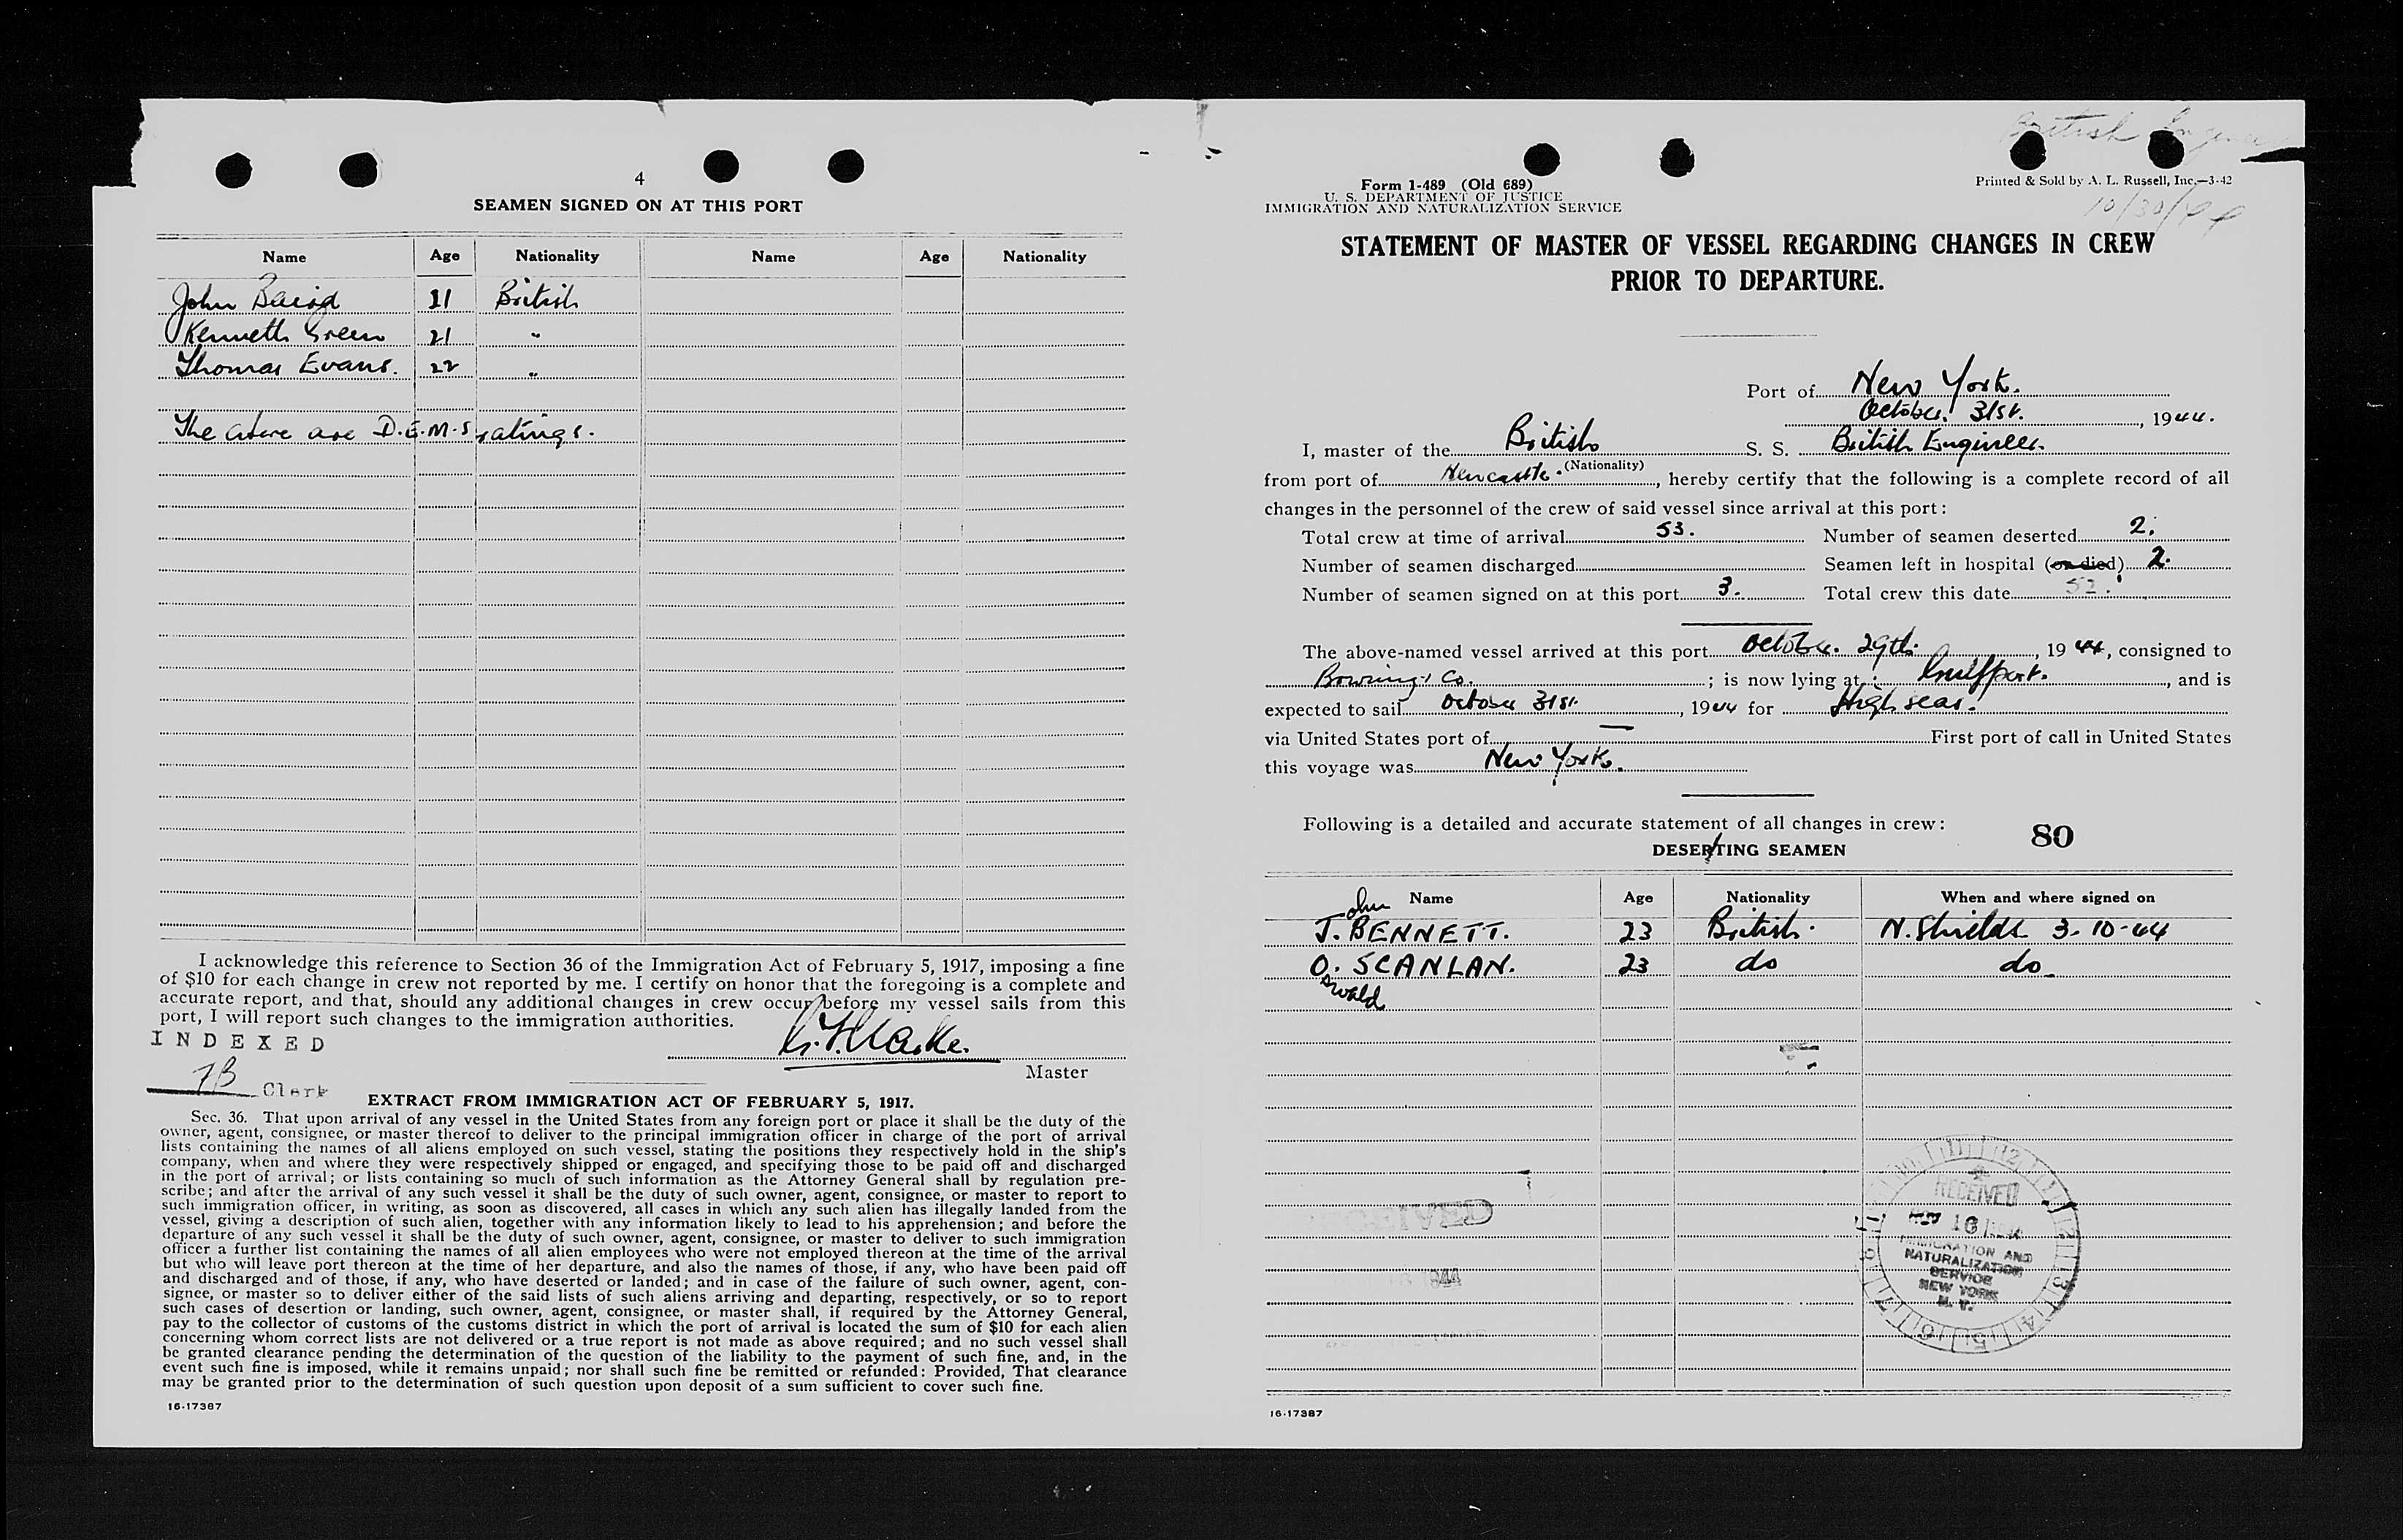 4
SEAMEN SIGNED ON AT THIS PORT
Name Age Nationality Name Age Nationality
John Baird 21 British
Kenneth Green 21 "
Thomas Evans. 22 "
The above are D.E.M.S ratings.
I acknowledge this reference to Section 36 of the Immigration Act of February 5, 1917, imposing a fine
of $10 for each change in crew not reported by me. I certify on honor that the foregoing is a complete and
accurate report, and that, should any additional changes in crew occur before my vessel sails from this
port, I will report such changes to the immigration authorities.
INDEXED
Clarke.
Master
Clerk
EXTRACT FROM IMMIGRATION ACT OF FEBRUARY 5, 1917.
Sec. 36. That upon arrival of any vessel in the United States from any foreign port or place it shall be the duty of the
owner, agent, consignee, or master thereof to deliver to the principal immigration officer in charge of the port of arrival
lists containing the names of all aliens employed on such vessel, stating the positions they respectively hold in the ship's
company, when and where they were respectively shipped or engaged, and specifying those to be paid off and discharged
in the port of arrival; or lists containing so much of such information as the Attorney General shall by regulation pre-
scribe; and after the arrival of any such vessel it shall be the duty of such owner, agent, consignee, or master to report to
such immigration officer, in writing, as soon as discovered, all cases in which any such alien has illegally landed from the
vessel, giving a description of such alien, together with any information likely to lead to his apprehension; and before the
departure of any such vessel it shall be the duty of such owner, agent, consignee, or master to deliver to such immigration
officer a further list containing the names of all alien employees who were not employed thereon at the time of the arrival
but who will leave port thereon at the time of her departure, and also the names of those, if any, who have been paid off
and discharged and of those, if any, who have deserted or landed; and in case of the failure of such owner, agent, con-
signee, or master so to deliver either of the said lists of such aliens arriving and departing, respectively, or so to report
such cases of desertion or landing, such owner, agent, consignee, or master shall, if required by the Attorney General,
pay to the collector of customs of the customs district in which the port of arrival is located the sum of $10 for each alien
concerning whom correct lists are not delivered or a true report is not made as above required; and no such vessel shall
be granted clearance pending the determination of the question of the liability to the payment of such fine, and, in the
event such fine is imposed, while it remains unpaid; nor shall such fine be remitted or refunded: Provided, That clearance
may be granted prior to the determination of such question upon deposit of a sum sufficient to cover such fine.
16-17387
British Engineer
Form 1-489 (Old 689)
U. S. DEPARTMENT OF JUSTICE
IMMIGRATION AND NATURALIZATION SERVICE
Printed & Sold by A. L. Russell, Inc.—3-42
10/30/44
STATEMENT OF MASTER OF VESSEL REGARDING CHANGES IN CREW
PRIOR TO DEPARTURE.
Port of New York.
October 31st., 1944.
I, master of the British S. S. British Engineer.
(Nationality)
from port of Newcastle., hereby certify that the following is a complete record of all
changes in the personnel of the crew of said vessel since arrival at this port:
Total crew at time of arrival 53. Number of seamen deserted 2.
Number of seamen discharged Seamen left in hospital (or died) 2.
Number of seamen signed on at this port 3. Total crew this date 52.
The above-named vessel arrived at this port October. 29th., 1944, consigned to
Bowring & Co. ; is now lying at Gulfport., and is
expected to sail October 31st., 1944 for High seas.
via United States port of — First port of call in United States
this voyage was New York.
Following is a detailed and accurate statement of all changes in crew:
80
DESERTING SEAMEN
Name Age Nationality When and where signed on
John
J. BENNETT. 23 British. N. Shields 3-10-44
O. SCANLAN. 23 do do
Oswald
RECEIVED
1944
RECEIVED
NOV 16 1944
IMMIGRATION AND
NATURALIZATION
SERVICE
NEW YORK
N. Y.
16-17387